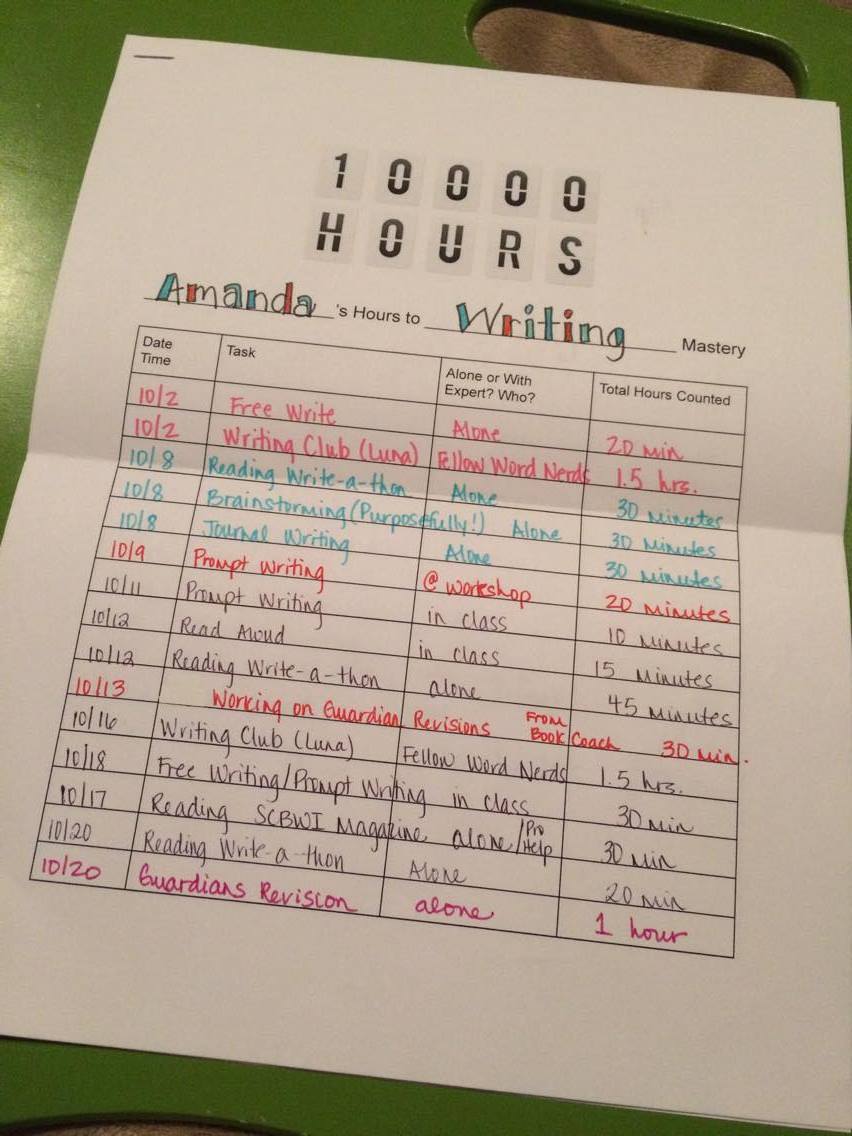 10000
HOURS
Amanda's Hours to Writing Mastery
Date Time Task Alone or With Expert? Who? Total Hours Counted
10/2 Free Write Alone 20 min
10/2 Writing Club (Luna) Fellow Word Nerds 1.5 hrs.
10/8 Reading Write-a-thon Alone 30 minutes
10/8 Brainstorming (Purposefully!) Alone 30 minutes
10/8 Journal Writing Alone 30 minutes
10/9 Prompt Writing @ workshop 20 minutes
10/11 Prompt Writing in class 10 minutes
10/12 Read Aloud in class 15 minutes
10/12 Reading Write-a-thon alone 45 minutes
10/13 Working on Guardian Revisions From Book Coach 30 min.
10/16 Writing Club (Luna) Fellow Word Nerds 1.5 hrs.
10/18 Free Writing/Prompt Writing in class 30 min
10/17 Reading SCBWI Magazine alone/Pro Help 30 min
10/20 Reading Write-a-thon Alone 20 min
10/20 Guardians Revision alone 1 hour